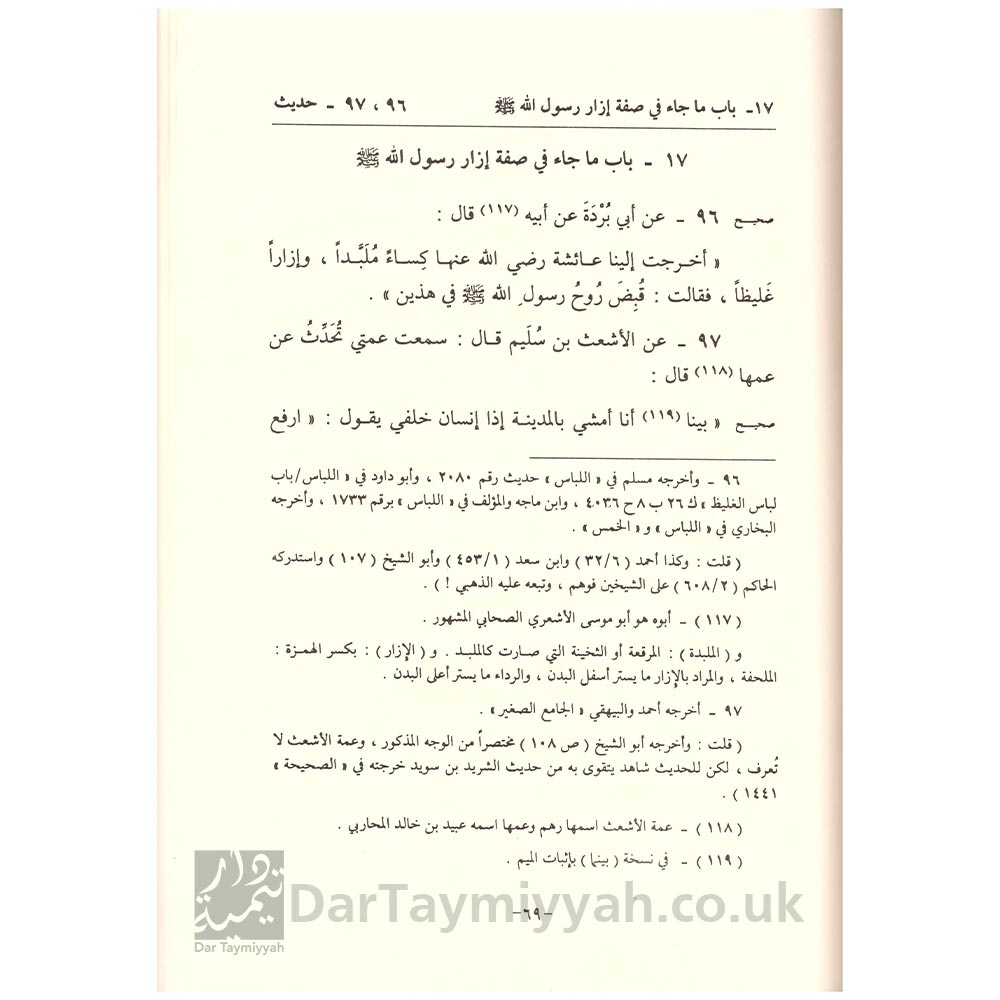 ١٧- باب ما جاء في صفة إزار رسول الله ﷺ ٩٦ ، ٩٧ - حديث
١٧ - باب ما جاء في صفة إزار رسول الله ﷺ
صحيح ٩٦ - عن أبي بُرْدَةَ عن أبيه (١١٧) قال :
« أخرجت إلينا عائشة رضي الله عنها كِساءً مُلَبَّداً ، وإزاراً
غَليظاً ، فقالت : قُبِضَ رُوحُ رسولِ الله ﷺ في هذين » .
٩٧ - عن الأشعث بن سُلَيم قال : سمعت عمتي تُحَدِّثُ عن
عمها (١١٨) قال :
صحيح « بينا (١١٩) أنا أمشي بالمدينة إذا إنسان خلفي يقول : « ارفع
٩٦ - وأخرجه مسلم في « اللباس » حديث رقم ٢٠٨٠ ، وأبو داود في « اللباس/باب
لباس الغليظ » ك ٢٦ ب ٨ ح ٤٠٣٦ ، وابن ماجه والمؤلف في « اللباس » برقم ١٧٣٣ ، وأخرجه
البخاري في « اللباس » و « الخمس » .
( قلت : وكذا أحمد ( ٣٢/٦ ) وابن سعد ( ٤٥٣/١ ) وأبو الشيخ ( ١٠٧ ) واستدركه
الحاكم ( ٦٠٨/٢ ) على الشيخين فوهم ، وتبعه عليه الذهبي ! ) .
( ١١٧ ) - أبوه هو أبو موسى الأشعري الصحابي المشهور .
و ( الملبدة ) : المرقعة أو الثخينة التي صارت كالملبد . و ( الإزار ) : بكسر الهمزة :
الملحفة ، والمراد بالإزار ما يستر أسفل البدن ، والرداء ما يستر أعلى البدن .
٩٧ - أخرجه أحمد والبيهقي « الجامع الصغير » .
( قلت : وأخرجه أبو الشيخ ( ص ١٠٨ ) مختصراً من الوجه المذكور ، وعمة الأشعث لا
تُعرف ، لكن للحديث شاهد يتقوى به من حديث الشريد بن سويد خرجته في « الصحيحة »
١٤٤١ ) .
( ١١٨ ) - عمة الأشعث اسمها رهم وعمها اسمه عبيد بن خالد المحاربي .
( ١١٩ ) - في نسخة ( بينما ) بإثبات الميم .
-٦٩-
دار تيمية
Dar Taymiyyah
DarTaymiyyah.co.uk